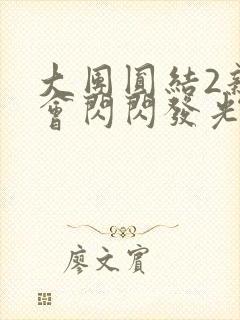 大團圓結2新
會閃閃發光
廖文賓